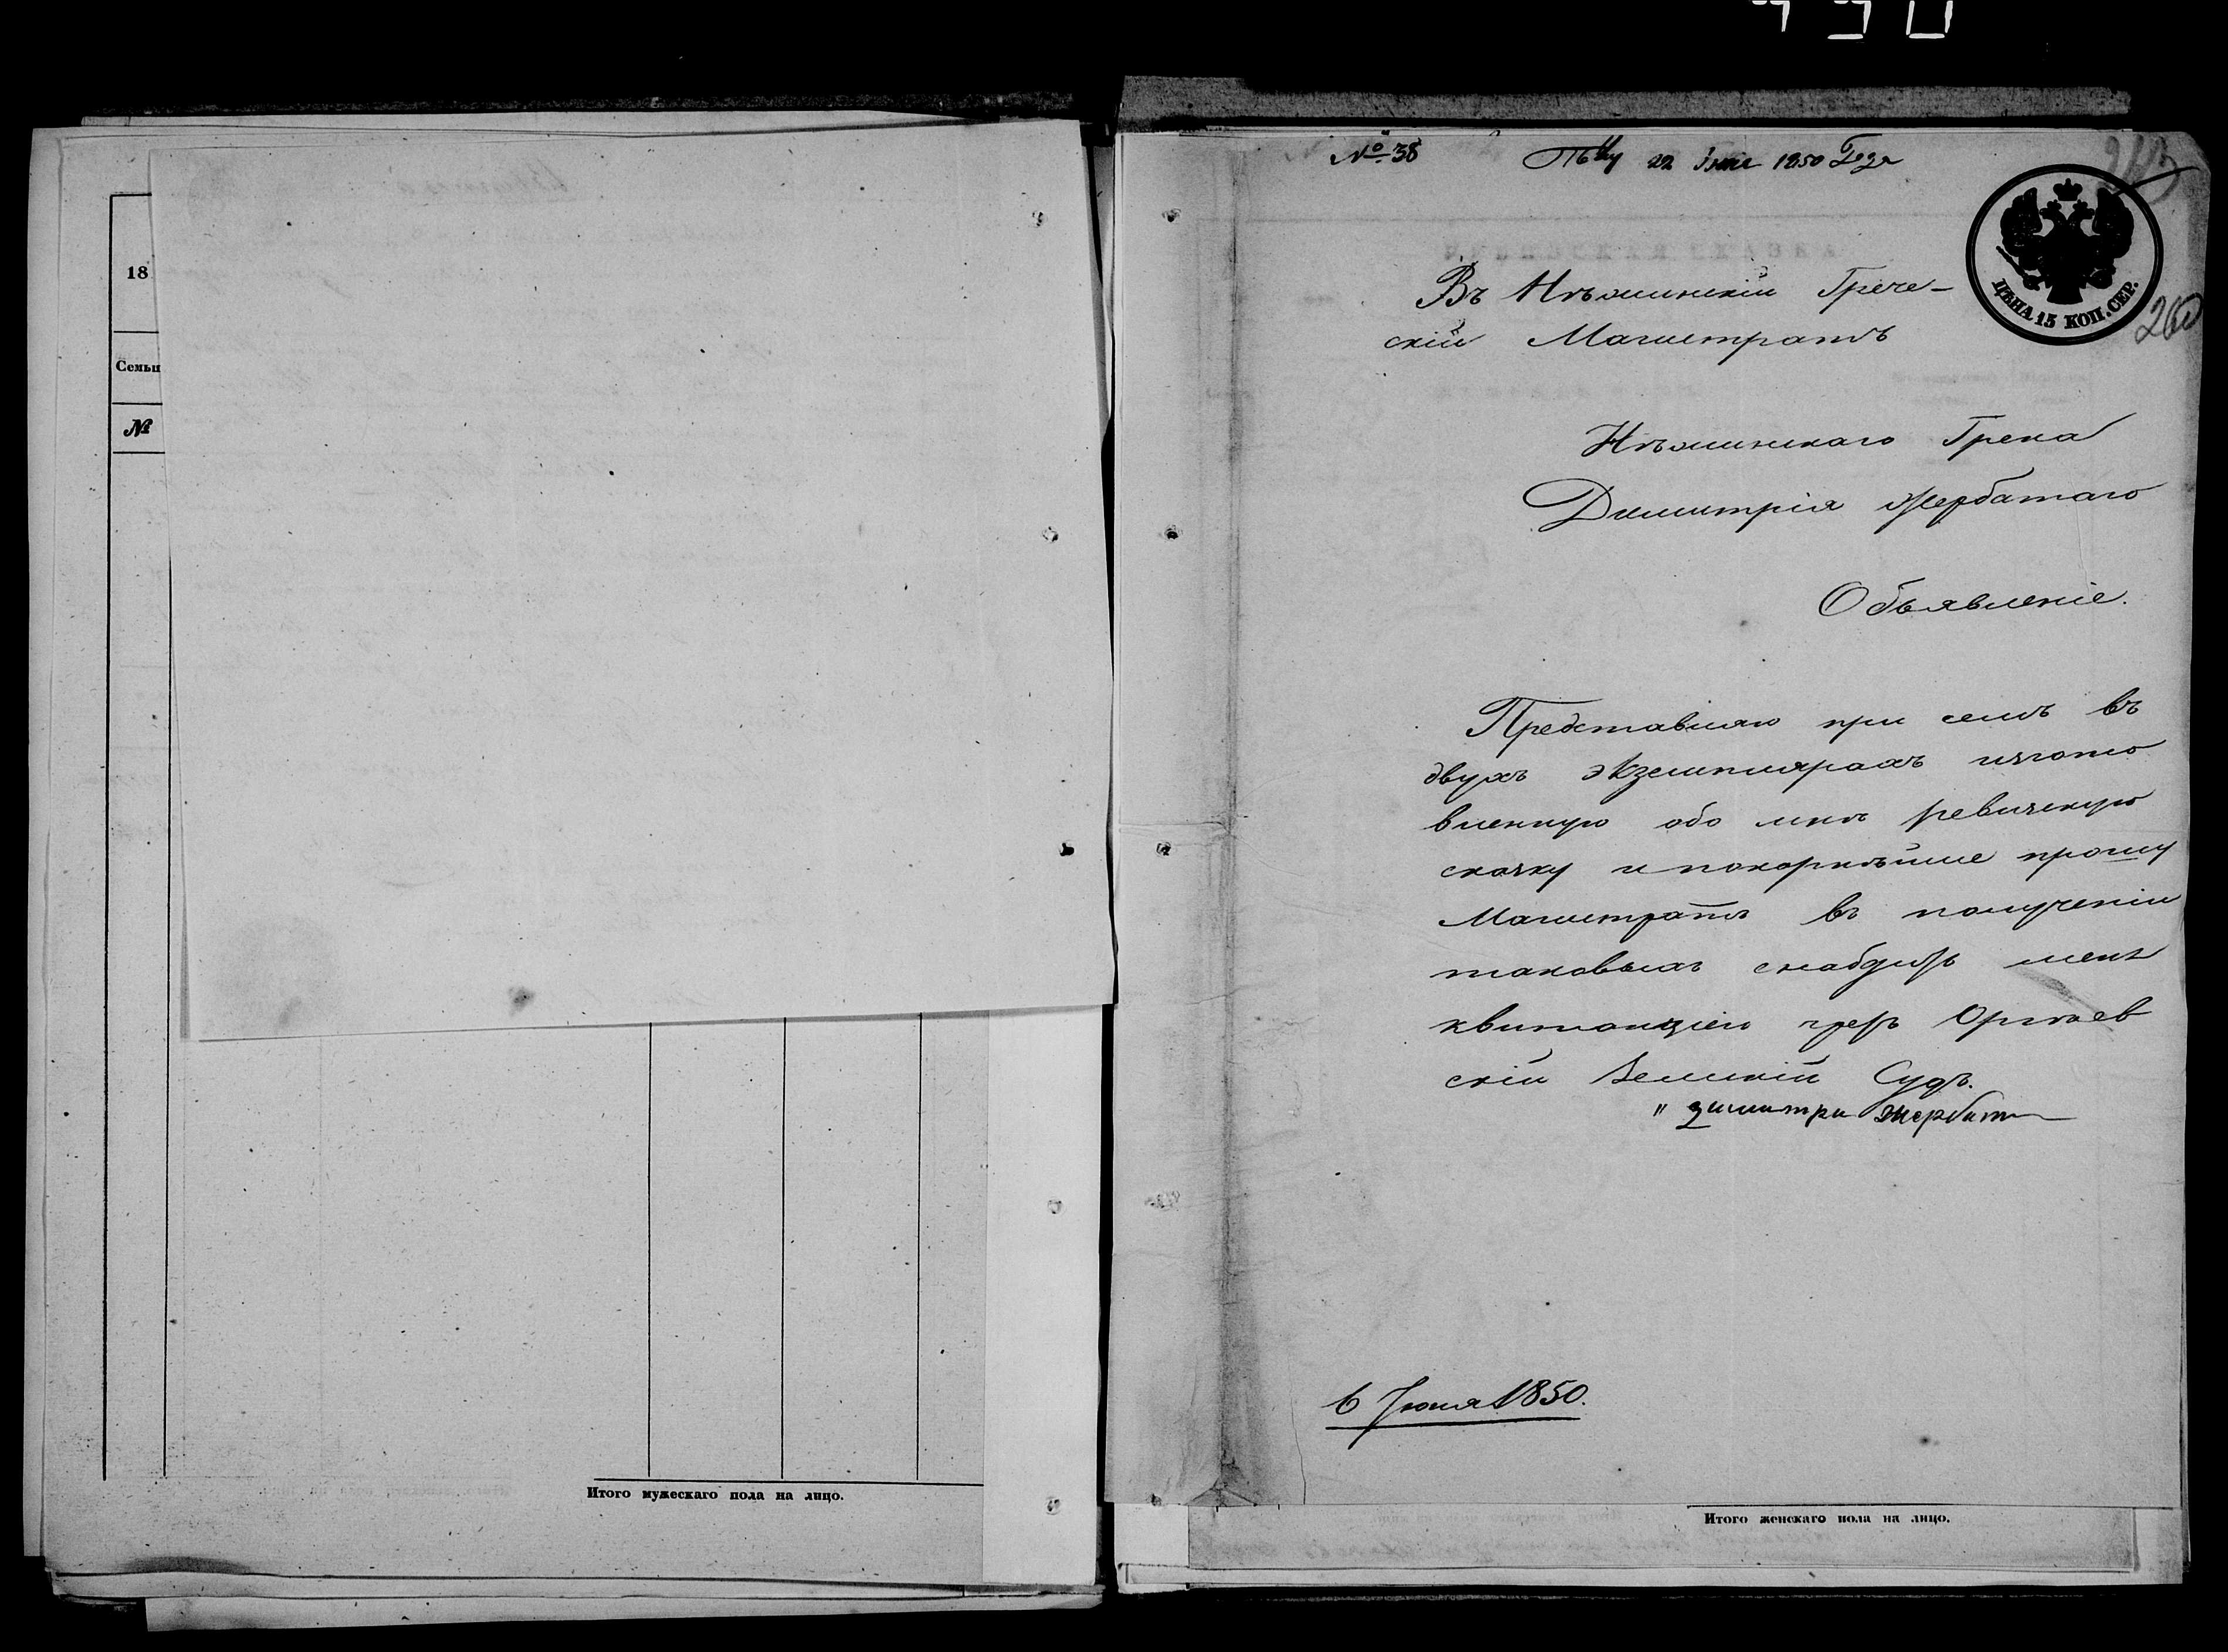 18
Семьи
№
Итого мужескаго пола на лицо.
№ 38
22 Іюня 1850 Года
ЦѢНА 15 КОП. СЕР.
260
Въ Нѣжинскій Грече-
скій Магистратъ
Нѣжинскаго Грека
Димитрія Жербатаго
Объявленіе.
Представляю при семъ въ
двухъ экземплярахъ изгото
вленную обо мнѣ ревизскую
сказку и покорнѣйше прошу
Магистратъ въ полученіи
таковыхъ снабдить меня
квитанціею чрезъ Оргѣев
скій Земскій Судъ.
" димитри жербат
6 Іюня 1850.
Итого женскаго пола на лицо.